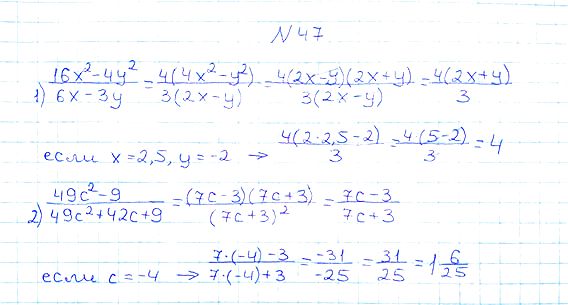 N47
1) (16x² - 4y²)/(6x - 3y) = 4(4x² - y²)/3(2x - y) = 4(2x - y)(2x + y)/3(2x - y) = 4(2x + y)/3
если x = 2,5, y = -2 → 4(2·2,5 - 2)/3 = 4(5 - 2)/3 = 4
2) (49c² - 9)/(49c² + 42c + 9) = (7c - 3)(7c + 3)/(7c + 3)² = (7c - 3)/(7c + 3)
если c = -4 → (7·(-4) - 3)/(7·(-4) + 3) = -31/-25 = 31/25 = 1 6/25